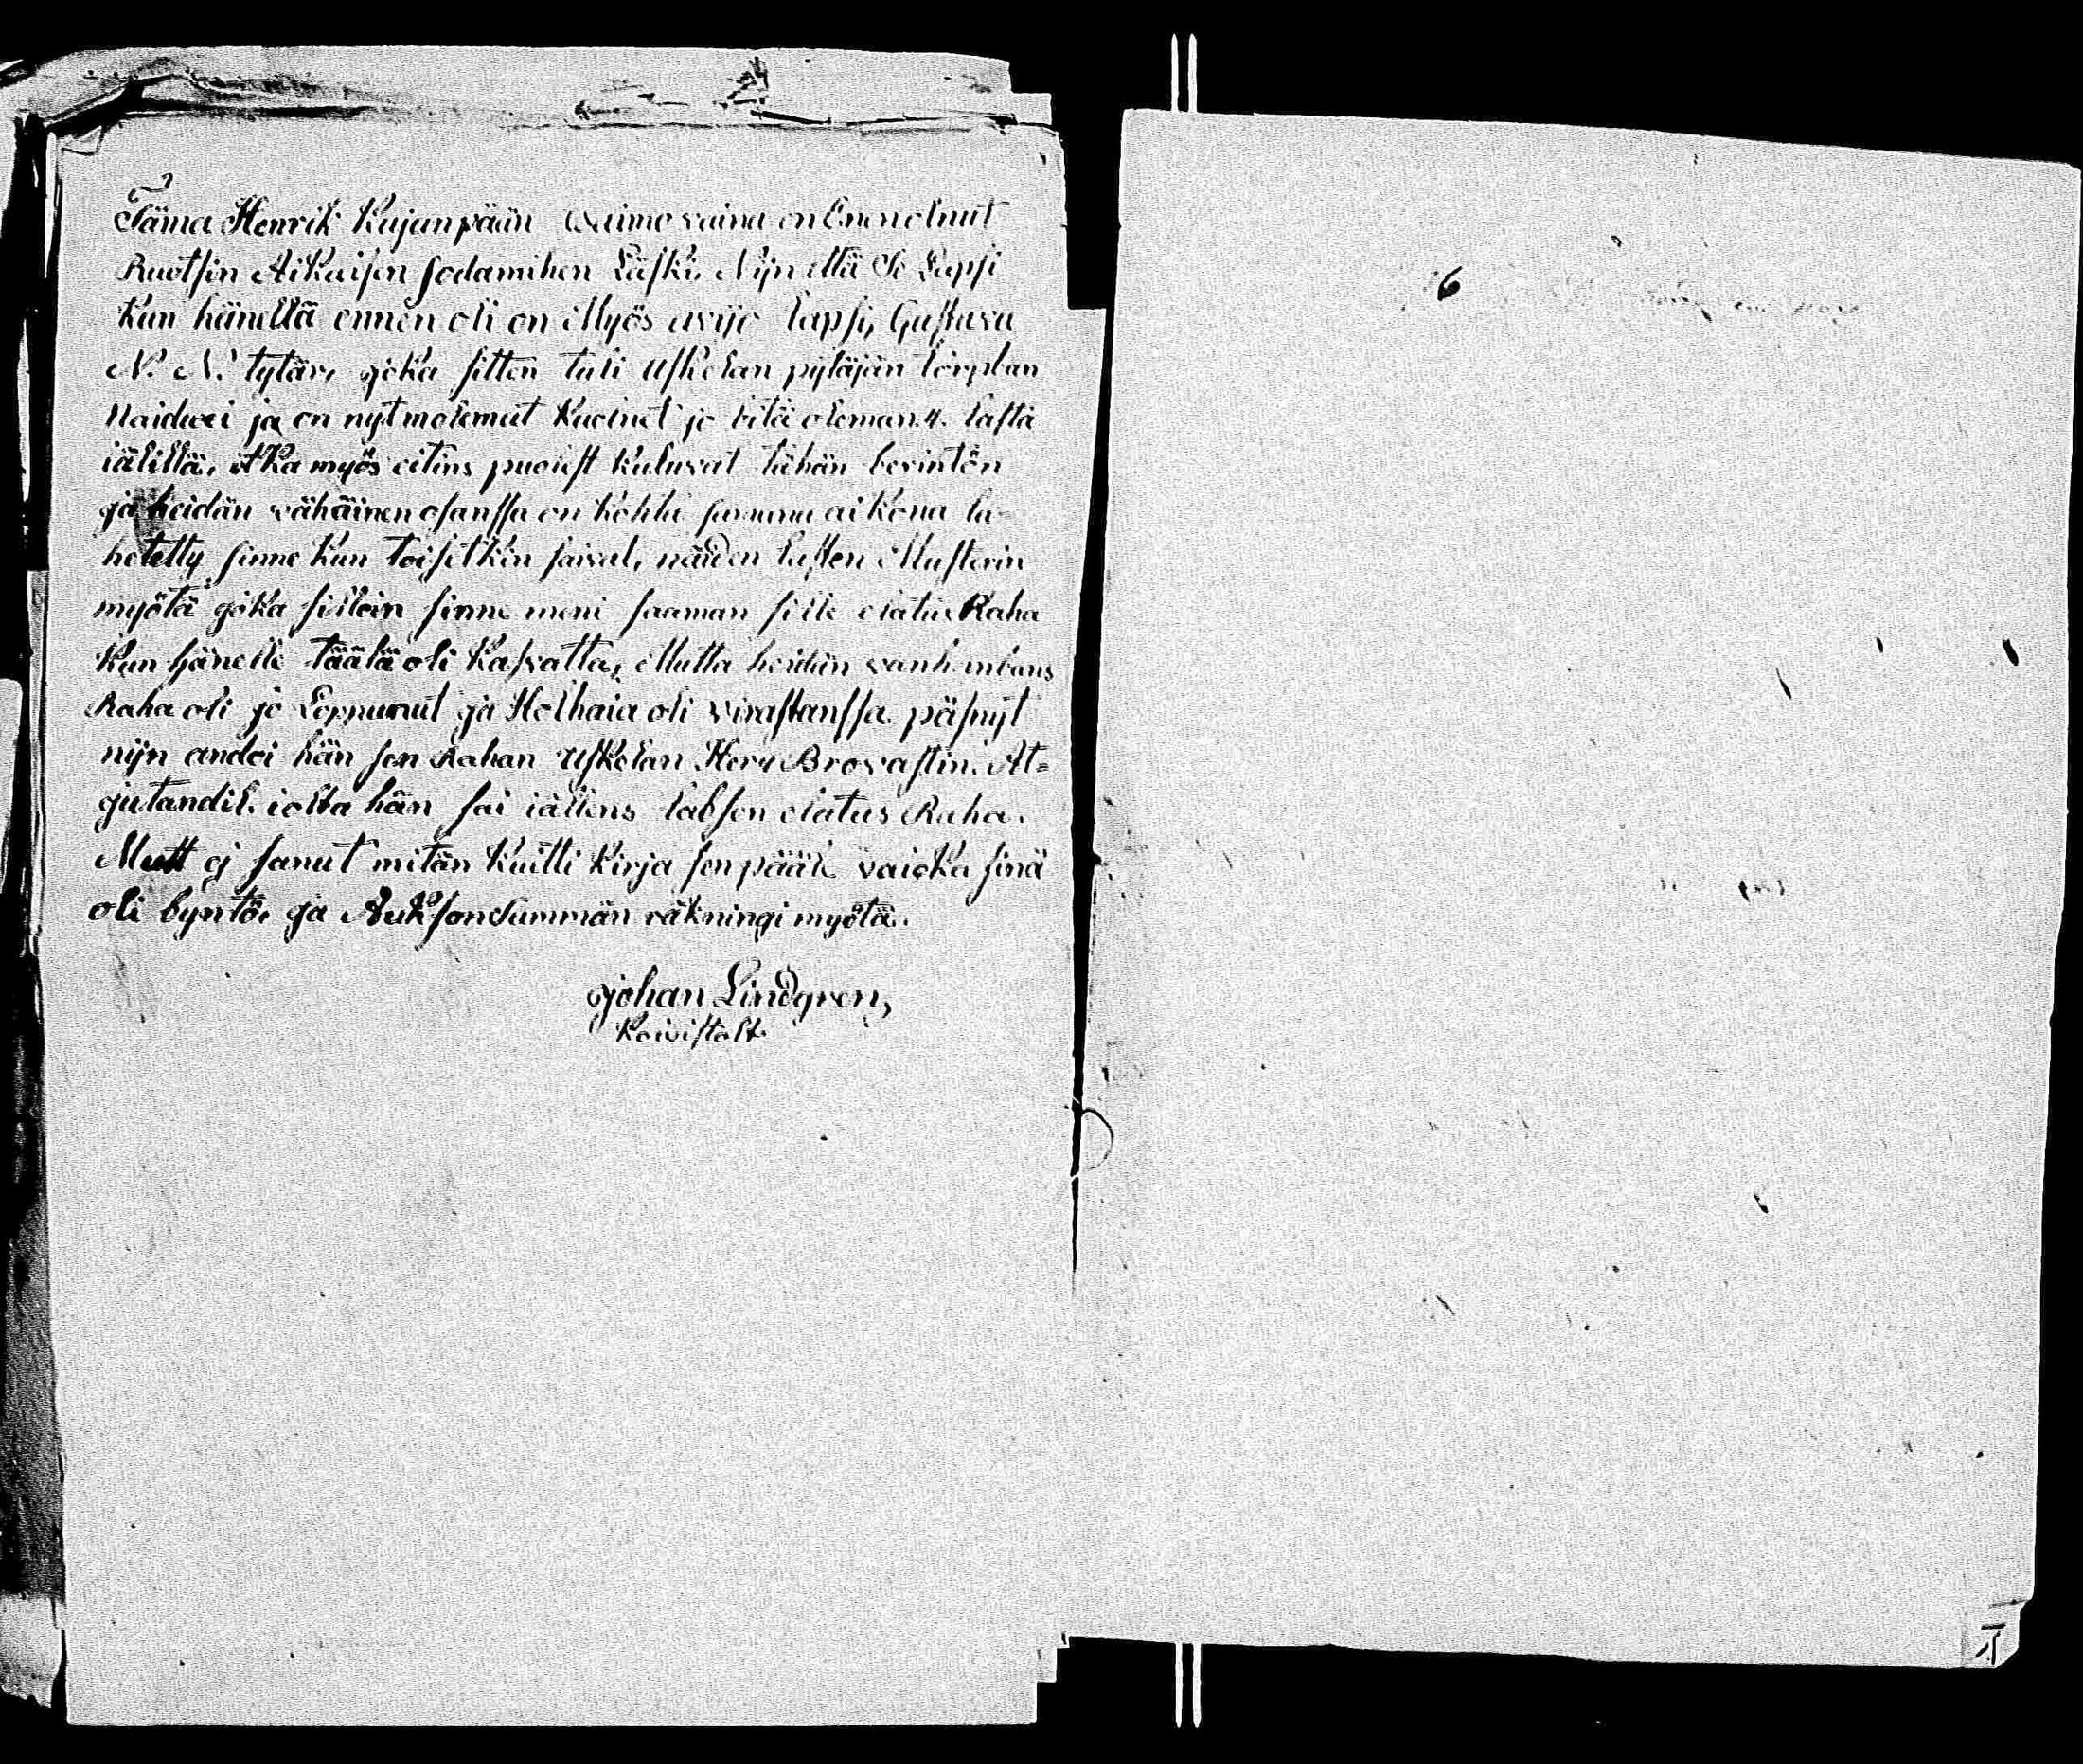 Tämä Henrik Kujanpään Waimo vaina on Enen olnut
Ruotsin Aikaisen sodamihen Läski, Nijn että Se Lapsi
kun hänellä ennen oli on Myös avijo lapsi, Gustava
N. N. tytär, joka sitten tuli Uskelan pytäjän torpban
Naiduxi ja on nyt molemat kuolnet jo vitä oleman 4. lasta
jälillä, jotka myös eitins puolest kuluvat tähän perintön
ja heidän vähäinen osanssa on kohta samana aikona lä-
hetetty sinne kun toisetkin saivat, näiden lasten Musterin
myötä joka silloin sinne meni saaman sille elatus Raha
kun hänelle täälä oli kasvatta, Mutta heidän vanhimbans
Raha oli jo Loppunut ja Holhaia oli virastanssa päsnyt
nijn andoi hän sen Rahan Uskelan Heru Brovastin. At=
jutandil. jolta hän sai jällens labsen elatus Raha.
Mutt ej sanut mitän kuitti kirja sen pääle vaicka sinä
oli byntö, ja Auksonsumman räkningi myötä.
Johan Lindgren,
Koivistolt.
6